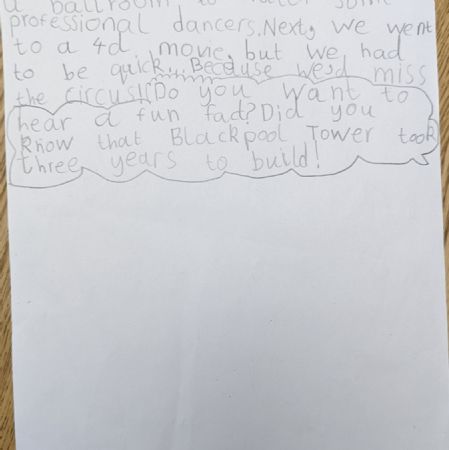 a ballroom to
professional dancers. Next, we went
to a 4d movie, but we had
to be quick, Because we'd miss
the circus!! Do you want to
hear a fun fad? Did you
know that Blackpool Tower took
three years to build!